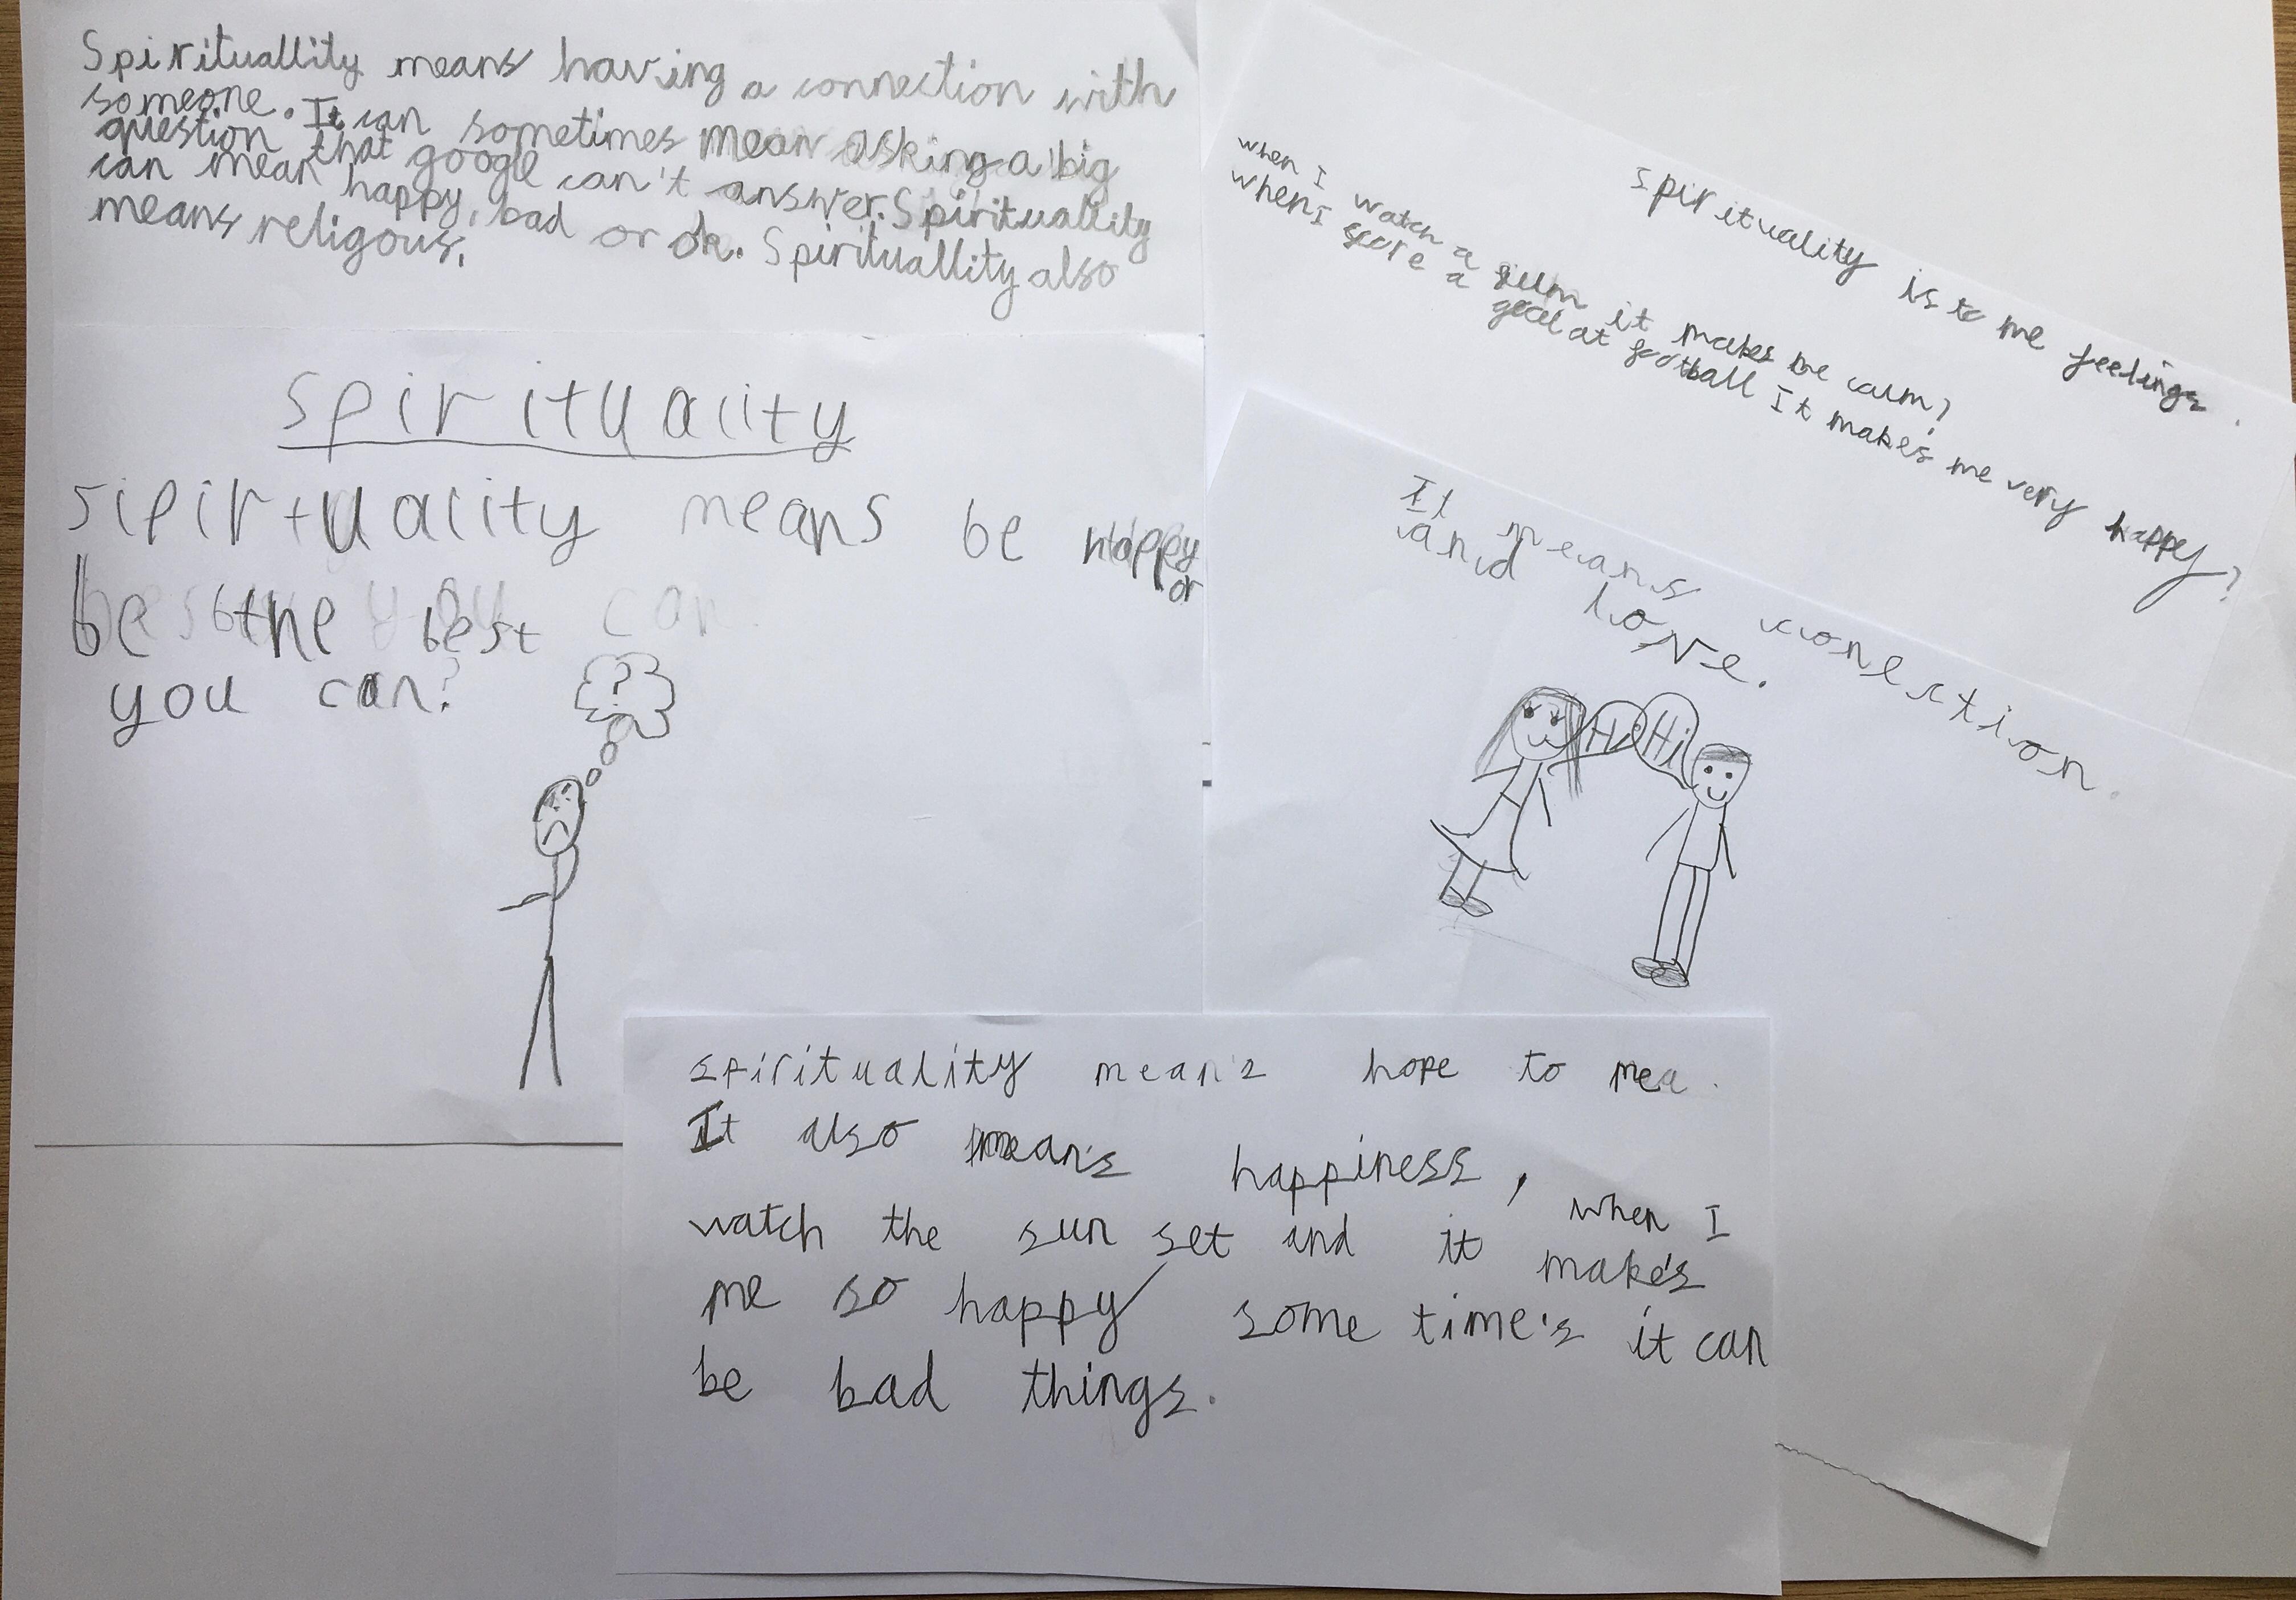 Spirituallity means having a connection with
someone. It can sometimes mean asking a big
question that google can't answer. Spirituallity
can mean happy, bad or ok. Spirituallity also
means religous.
spirituality
sipirtuality means be happy
or
be the best
you can?
?
spirituality is to me feelings.
when I watch a film it makes me calm?
when I score a goal at football It makes me very happy?
It means conection.
and love.
Hi Hi
spirituality mean's hope to mea.
It also mean's happiness, when I
watch the sun set and it make's
me so happy some time's it can
be bad things.